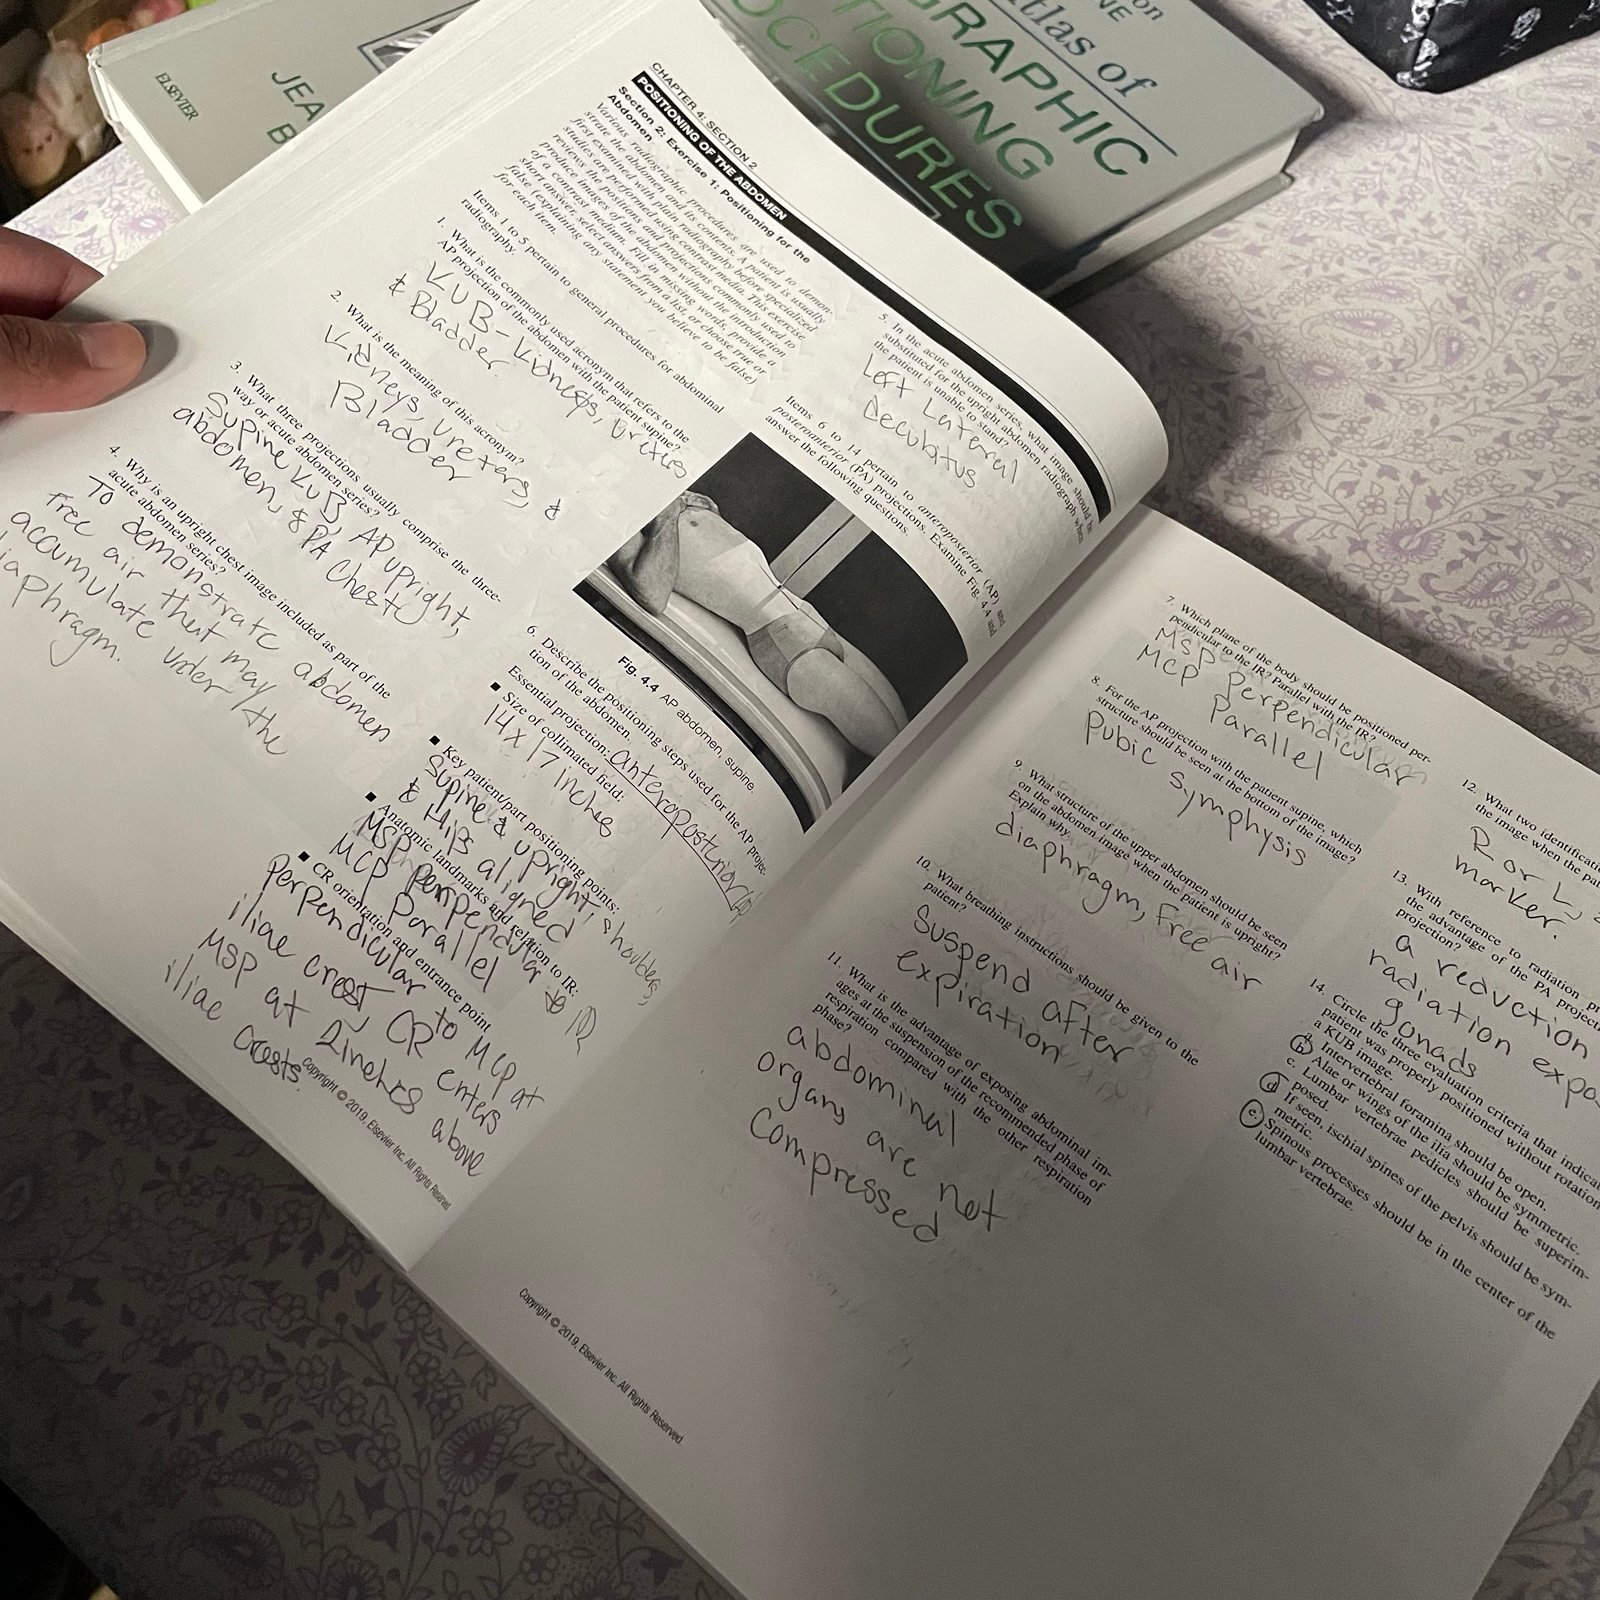 ELSEVIER
JEA
B
on
NE
tlas of
GRAPHIC
TIONING
OCEDURES
CHAPTER 4: SECTION 2
POSITIONING OF THE ABDOMEN
Section 2: Exercise 1: Positioning for the
Abdomen
Various radiographic procedures are used to demon-
strate the abdomen and its contents. A patient is usually
first examined with plain radiography before specialized
studies are performed using contrast media. This exercise
reviews the positions and projections commonly used to
produce images of the abdomen without the introduction
of a contrast medium. Fill in missing words, provide a
short answer, select answers from a list, or choose true or
false (explaining any statement you believe to be false)
for each item.
Items 1 to 5 pertain to general procedures for abdominal
radiography.
1. What is the commonly used acronym that refers to the
AP projection of the abdomen with the patient supine?
KUB- Kidneys,
& Bladder
2. What is the meaning of this acronym?
Kidneys, Ureters, &
Bladder
3. What three projections usually comprise the three-
way or acute abdomen series?
Supine KUB, AP Upright,
abdomen, & PA Chest
4. Why is an upright chest image included as part of the
acute abdomen series?
To demonstrate abdomen
free air that may
accumulate under the
iaphragm.
5. In the acute abdomen series, what image should be
substituted for the upright abdomen radiograph when
the patient is unable to stand?
Left Lateral
Decubitus
Items 6 to 14 pertain to anteroposterior (AP) and
posteroanterior (PA) projections. Examine Fig. 4.4 and
answer the following questions.
Fig. 4.4 AP abdomen, supine.
6. Describe the positioning steps used for the AP projec-
tion of the abdomen.
Essential projection: anteroposterior
■ Size of collimated field:
14x17 inches
■ Key patient/part positioning points:
Supine & upright, shoulders,
& Hips aligned
■ Anatomic landmarks and relation to IR:
MSP perpendicular to IR
MCP Parallel
■ CR orientation and entrance point
Perpendicular to MCP at
iliac crest, CR enters
MSP at 2inches above
iliac crests.
Copyright © 2019, Elsevier Inc. All Rights Reserved.
7. Which plane of the body should be positioned per-
pendicular to the IR? Parallel with the IR?
MSP perpendicular
MCP Parallel
8. For the AP projection with the patient supine, which
structure should be seen at the bottom of the image?
Pubic symphysis
9. What structure of the upper abdomen should be seen
on the abdomen image when the patient is upright?
Explain why.
diaphragm, free air
10. What breathing instructions should be given to the
patient?
Suspend after
expiration
11. What is the advantage of exposing abdominal im-
ages at the suspension of the recommended phase of
respiration compared with the other respiration
phase?
abdominal
organs are not
compressed
Copyright © 2019, Elsevier Inc. All Rights Reserved
12. What two identificati
the image when the pat
R or L,
marker.
13. With reference to radiation pr
the advantage of the PA project
projection?
a reduction
radiation expo
gonads
14. Circle the three evaluation criteria that indicat
patient was properly positioned without rotation
a KUB image.
a. Intervertebral foramina should be open.
b. Alae or wings of the ilia should be symmetric.
c. Lumbar vertebrae pedicles should be superim-
posed.
d. If seen, ischial spines of the pelvis should be sym-
metric.
e. Spinous processes should be in the center of the
lumbar vertebrae.